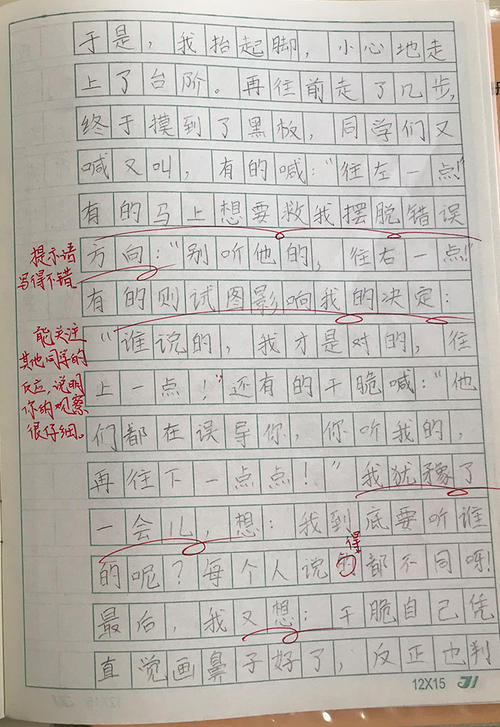 于是，我抬起脚，小心地走
上了台阶。再往前走了几步，
终于摸到了黑板，同学们又
喊又叫，有的喊：“往左一点！”
有的马上想要救我摆脱错误
方向：“别听他的，往右一点！”
有的则试图影响我的决定：
“谁说的，我才是对的，往
上一点！”还有的干脆喊：“他
们都在误导你，你听我的，
再往下一点点！”我犹豫了
一会儿，想：我到底要听谁
的呢？每个人说的都不同呀！
最后，我又想：干脆自己凭
直觉画鼻子好了，反正也判
提示语
写得不错
能关注
其他同学的
反应，说明
你的观察
很仔细。
得
12X15